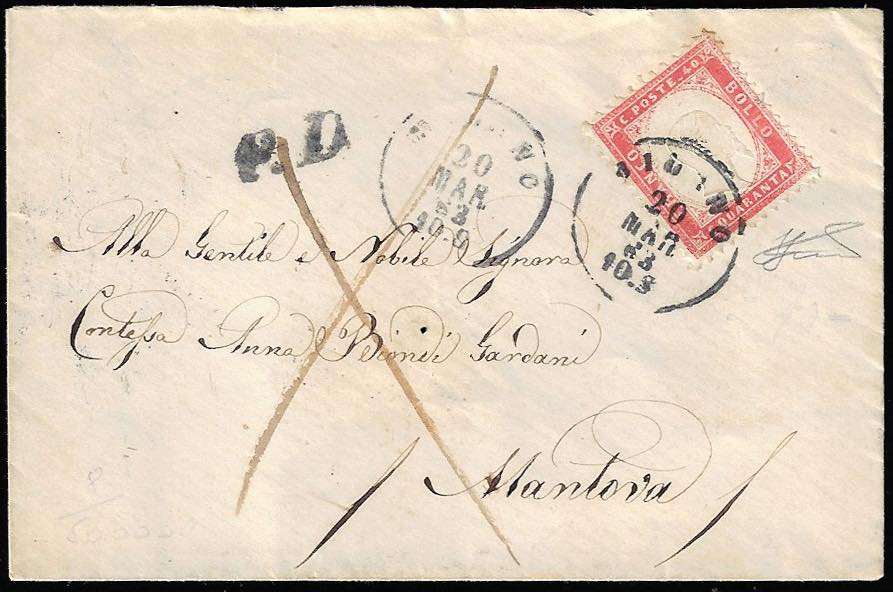 P.D.
20
MAR
63
10.S
C. POSTE. 40
BOLLO
QUARANTA
20
MAR
63
10.S
Alla Gentile e Nobile Signora
Contessa Anna Biondi Gardani
Mantova